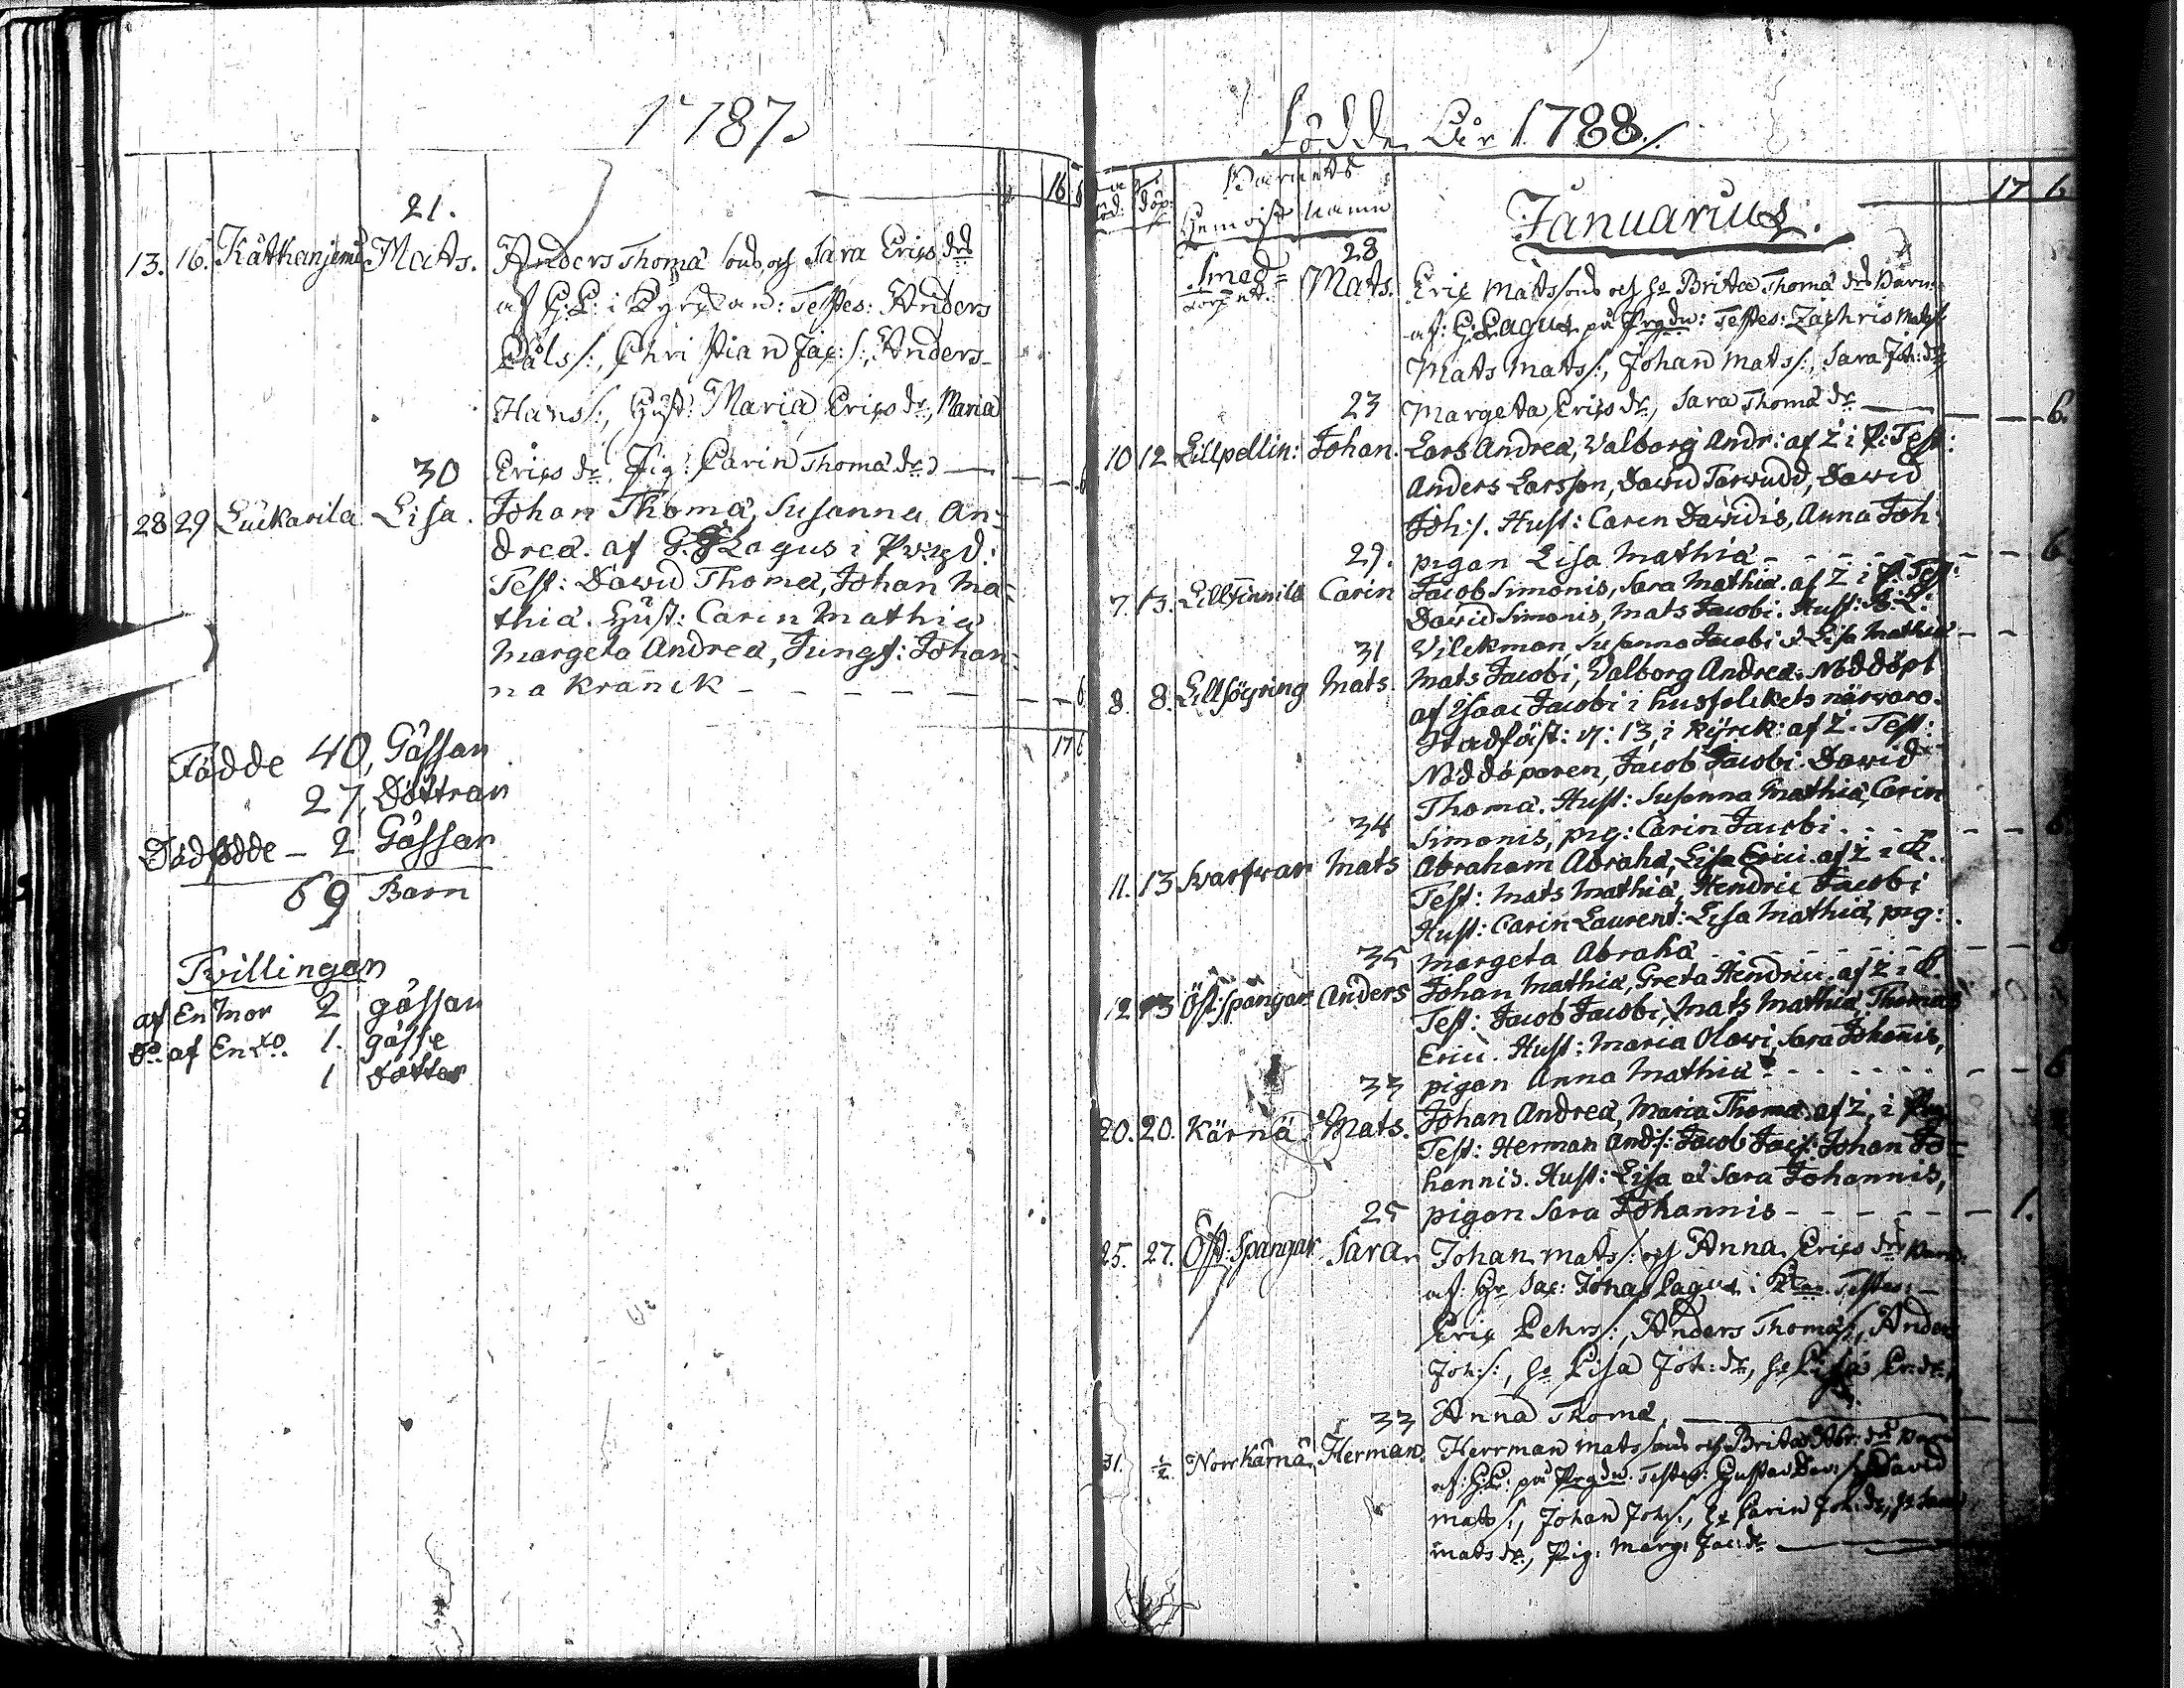 1787.
16 6
21.
13. 16. Kåtkanjemi Mats. Anders Thomæ sons och Sara Erics drs
af G:L: i Kyrckan: Testes: Anders
Påls/:, Christian Jac:/:, Anders
Hans/:, Hust: Maria Ericsdr, Maria
30 Ericsdr, Pig: Carin Thomædr — 6
28 29 Luckarila Lisa. Johan Thomæ, Susanna An-
dreæ. af G. Lagus i Prgd:
Test: David Thomæ, Johan Ma-
thiæ. Hust: Carin Mathiæ
Margeta Andreæ, Jungf: Johan-
na Kranck - - - - - 6
17 6
Födde 40, Gåssar
27, Döttrar
Dödfödde - 2 Gåssar
69 Barn
Tvillingar
af En Mor 2 gåssar
Do af En do. 1. gåsse
1 dotter
Födde År 1788./.
Barnets
föd. döp.
Hemvist namn
17 6
Januarius.
28
Smed=
torpet. Mats. Eric Matssons och ho Brita Thomædrs Barn
af: G:Lagus på Prgdn: Testes: Zachris Mats/:
Mats Mats/:, Johan Mats/:, Sara Joh:dr
23 Margeta Ericsdr, Sara Thomædr — 6.
10 12 Lillpellin: Johan. Lars Andreæ, Valborg Andr: af Z i P: Test:
Anders Larsson, David Tarvudd, David
Joh:/. Hust: Carin Davidis, Anna Joh:
29. pigan Lisa Mathiæ - - - - - 6
7. 13. Lillfinnila Carin Jacob Simonis, Sara Mathiæ. af Z i P. Test:
David Simonis, Mats Jacobi. Hust: A: L:
31 Vilckman, Susanna Jacobi & Lisa Mathiæ - -
8. 8. Lillsöyring Mats. Mats Jacobi, Valborg Andreæ. Nöddöpt
af Isaac Jacobi i husfolckets närvaro.
Stadfäst: d: 13, i kyrck: af Z. Test:
Nöddöparen, Jacob Jacobi. David
Thomæ. Hust: Susanna Mathiæ, Carin
34 Simonis, pig: Carin Jacobi. - - - 6
11. 13 Svartvar Mats Abraham Abrahæ, Lisa Erici. af Z i P.
Test: Mats Mathiæ, Hendric Jacobi
Hust: Carin Laurent: Lisa Mathiæ, pig:
35 Margeta Abrahæ - - - - - 6
12 13 Öst:spangar Anders Johan Mathiæ, Greta Hendrici. af Z i P.
Test: Jacob Jacobi, Mats Mathiæ, Thomas
Erici. Hust: Maria Olavi, Sara Johannis,
33 pigan Anna Mathiæ - - - - - 6
20. 20. Kärnä Mats. Johan Andreæ, Maria Thomæ. af Z, i Prg.
Test: Herman And/: Jacob Jac/: Johan Jo-
hannis. Hust: Lisa et Sara Johannis,
25 pigan Sara Johannis - - - - - 1.
25. 27. Öst:Spangar Sara Johan Mats/: och Anna Ericsdrs Barn
af: Hr Sac: Jonas Lagus i Testes:
Eric Pehrs/:, Anders Thomæ/:, Anders
Joh:/:, ho Lisa Joh:dr, ho Lisa Er:dr,
33 Anna Thomæ, —
31. 1/2. Norrkärnä Herman. Herrman Matssons och Brita Abr:drs Barn
af: G:L: på Prgdn. Testes: Gustav Dav:/: David
Mats/:, Johan Joh/:, ho Carin Joh:dr, ho Sara
Matsdr, Pig: Marg: Jac:dr —